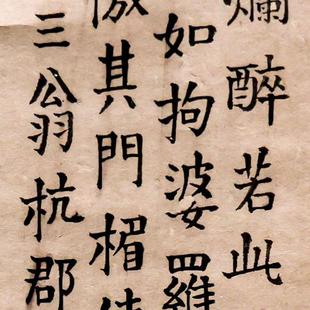 爛醉若此
如拘婆羅
其門楣
三翁杭郡